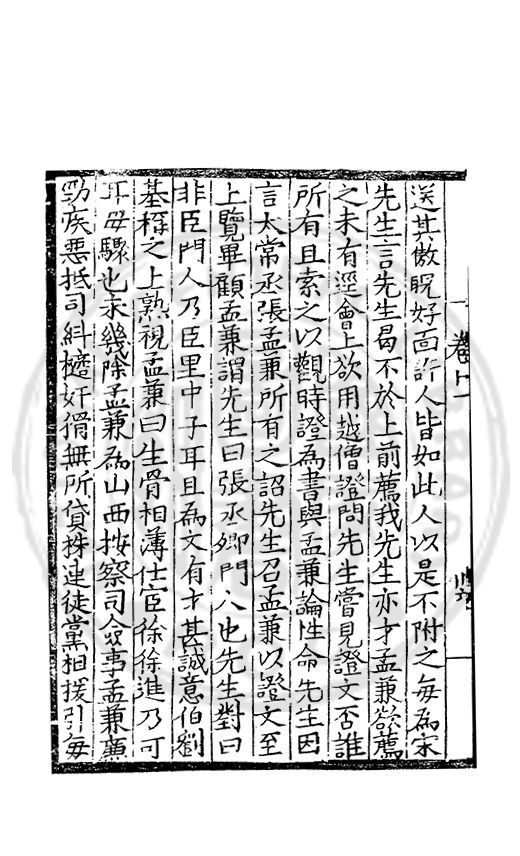 卷十一
送其傲睨好面訐人皆如此人以是不附之每為宋
先生言先生曷不於上前薦我先生亦才孟兼欲薦
之未有逕會上欲用越僧證問先生嘗見證文否誰
所有且索之以觀時證為書與孟兼論性命先生因
言太常丞張孟兼所有之詔先生召孟兼以證文至
上覽畢顧孟兼謂先生曰張丞卿門人也先生對曰
非臣門人乃臣里中子耳且為文有才甚誠意伯劉
基稱之上熟視孟兼曰生骨相薄仕宦徐徐進乃可
耳毋驟也未幾除孟兼為山西按察司僉事孟兼廉
勁疾惡抵司糾擿奸猾無所貸株連徒黨相援引每